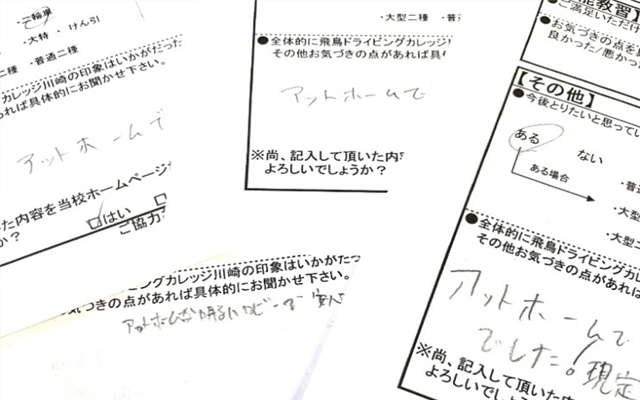 ・二輪車
・大特 ・けん引
二種 ・普通二種
カレッジ川崎の印象はいかがだった
あれば具体的にお聞かせ下さい。
アットホームで
た内容を当校ホームページ
か?
□はい
ご協力
・大型二種 ・普
●全体的に飛鳥ドライビングカレッジ
その他お気づきの点があれば具
アットホームで
※尚、記入して頂いた内容
よろしいでしょうか?
能教習】
●ご満足いただけ
●お気づきの点を
良かった/悪かっ
【その他】
●今後とりたいと思ってい
ある ない ・普
ある場合
・大型
・大型
●全体的に飛鳥ドライビ
その他お気づきの点
アットホームで
でした!現定
※尚、記入して頂い
よろしいでしょう
ビングカレッジ川崎の印象はいかがだっ
気づきの点があれば具体的にお聞かせ下さい。
アットホームな明るい